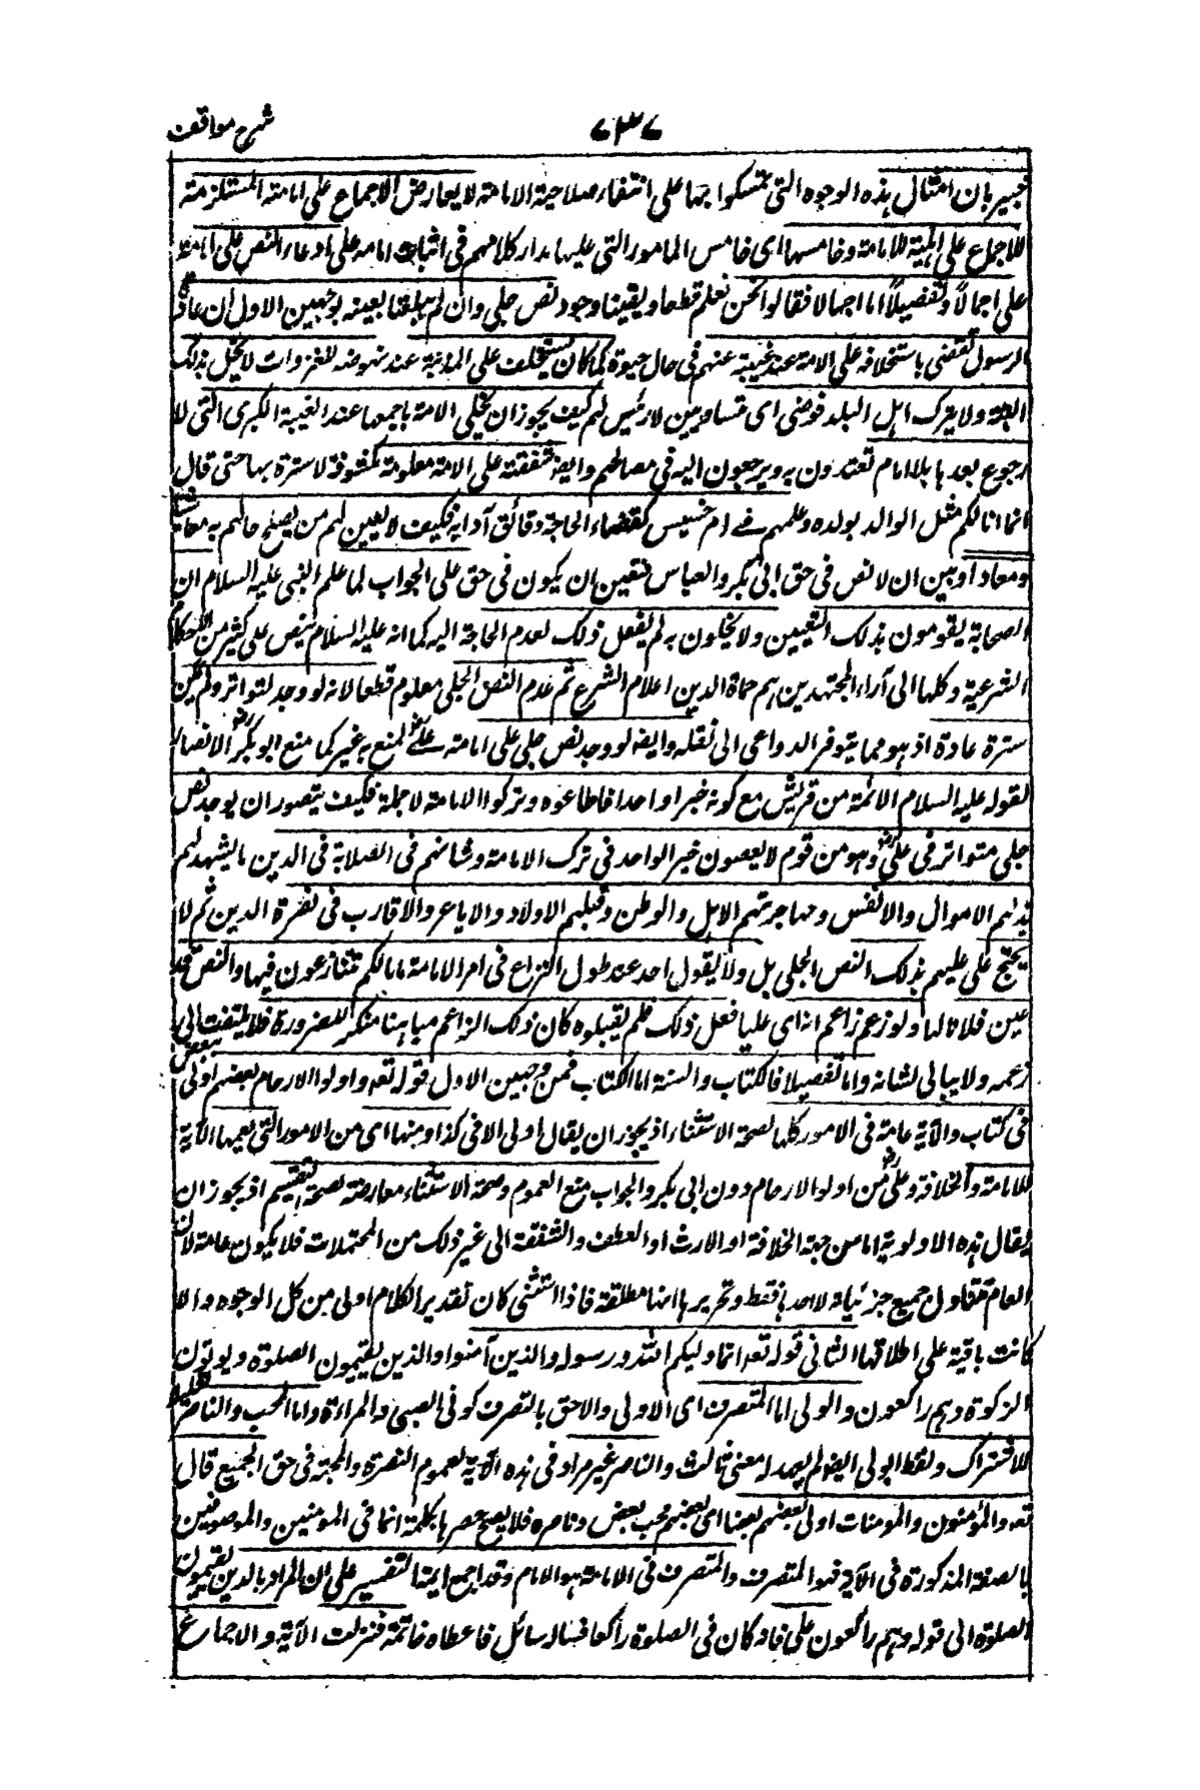 شرح مواقف
٧٣٧
خبير بان امثال هذه الوجوه التى تمسكوا بها على انتفاء صلاحية الامامة لا يعارض الاجماع على امامته المستلزمة
للاجماع على اهلية للامامة وخامسها اى خامس الامور التى عليها مدار كلامهم فى اثبات امامه على ادعاء النص على امامة
على اجمالاً وتفصيلاً اما اجمالا فقالوا نحن نعلم قطعا ويقينا وجود نص جلى وان لم يبلغنا بعينه بوجهين الاول ان عادة
الرسول تقضى باستخلافه على الامة عند غيبته عنهم فى حال حيوة كما كان يستخلف على المدينة عند نهوضه للغزوات لا يخل بذلك
البتة ولا يترك اهل البلد فوضى اى متساويين لا رئيس لهم كيف يجوز ان يخلى الامة باجمعها عند الغيبة الكبرى التى لا
رجوع بعدها بلا امام تعتدون به ويرجعون اليه فى مصالحهم وايضا شفقته على الامة معلومة مكشوفة لا سترة بها حتى قال
انما انا لكم مثل الوالد بولده وعلمهم فى امر خسيس كقضاء الحاجة دقائق آدابه فكيف لا يعين لهم من يصلح حالهم به معاشا
ومعادا وبين ان لا نص فى حق ابى بكر والعباس فتعين ان يكون فى حق على الجواب لما علم النبى عليه السلام ان
الصحابة يقومون بذلك التعيين ولا يخلون به لم يفعل ذلك لعدم الحاجة اليه كما انه عليه السلام لم ينص على كثير من الاحكام
الشرعية وكلها الى آراء المجتهدين هم حماة الدين اعلام الشرع ثم عدم النص الجلى معلوم قطعا لانه لو وجد لتواتر ولم يمكن
سترة عادة اذ هو مما يتوفر الدواعى الى نقله وايضا لو وجد نص جلى على امامته على رض لمنع به غيره كما منع ابو بكر رض الانصار
لقوله عليه السلام الائمة من قريش مع كونه خبرا واحدا فاطاعوه وتركوا الامامة لاجله فكيف يتصور ان يوجد نص
جلى متواتر فى على رض وهو من قوم لا يعصون خبر الواحد فى ترك الامامة وشانهم فى الصلابة فى الدين ما يشهد لهم
بذلهم الاموال والانفس ومهاجرتهم الاهل والوطن وقتلهم الاولاد والاباء والاقارب فى نصرة الدين ثم لا
يحتج على عليهم بذلك النص الجلى بل ولا يقول احد عند طول النزاع فى امر الامامة مالكم تتنازعون فيها والنص قد
عين فلانا لها ولو زعم زاعم انه اى عليا فعل ذلك فلم يقبلوه كان ذلك الزاعم مباهتا منكرا للضرورة فلا يلتفت الى
زعمه ولا يبالى لشانه واما تفصيلا فالكتاب والسنة اما الكتاب فمن وجهين الاول قوله تعه واولوا الارحام بعضهم اولى ببعض
فى كتاب والآية عامة فى الامور كلها لصحة الاستثناء اذ يجوز ان يقال اولى الا فى كذا ومنها اى من الامور التى يعمها الآية
للامامة والخلافة وعلى رض من اولو الارحام دون ابى بكر والجواب منع العموم وصحة الاستثناء معارضة لصحة التقسيم اذ يجوز ان
يقال هذه الاولوية اما من جهة الخلافة او الارث او العطف والشفقة الى غير ذلك من المحتملات فلا يكون عامة لان
العام متناول جميع جزئياته لا احدها فقط وتحريرها انها مطلقة فاذا استثنى كان تقدير الكلام اولى من كل الوجوه والا
كانت باقية على اطلاقها الثانى قوله تعه انما وليكم الله ورسوله والذين آمنوا والذين يقيمون الصلوة ويوتون
الزكوة وهم راكعون والولى اما المتصرف اى الاولى والاحق بالتصرف كولى الصبى والمراءة واما المحب والناصر تقليلا
للاشتراك ولفظ الولى ايضا لم يعهد له معنى ثالث والناصر غير مراد فى هذه الآية لعموم النصرة والمحبة فى حق الجميع قال
تعه والمؤمنون والمومنات اولى بعضهم بعضا اى بعضهم محب بعض وناصره فلا يصح حصرها بكلمة انما فى المومنين والموصوفين
بالصفة المذكورة فى الآية فهو المتصرف والمتصرف فى الامامة هو الامام وقد اجمع ايمة التفسير على ان المراد بالذين يقيمون
الصلوة الى قوله وهم راكعون على فانه كان فى الصلوة راكعا فساله سائل فاعطاه خاتمه فنزلت الآية والاجماع